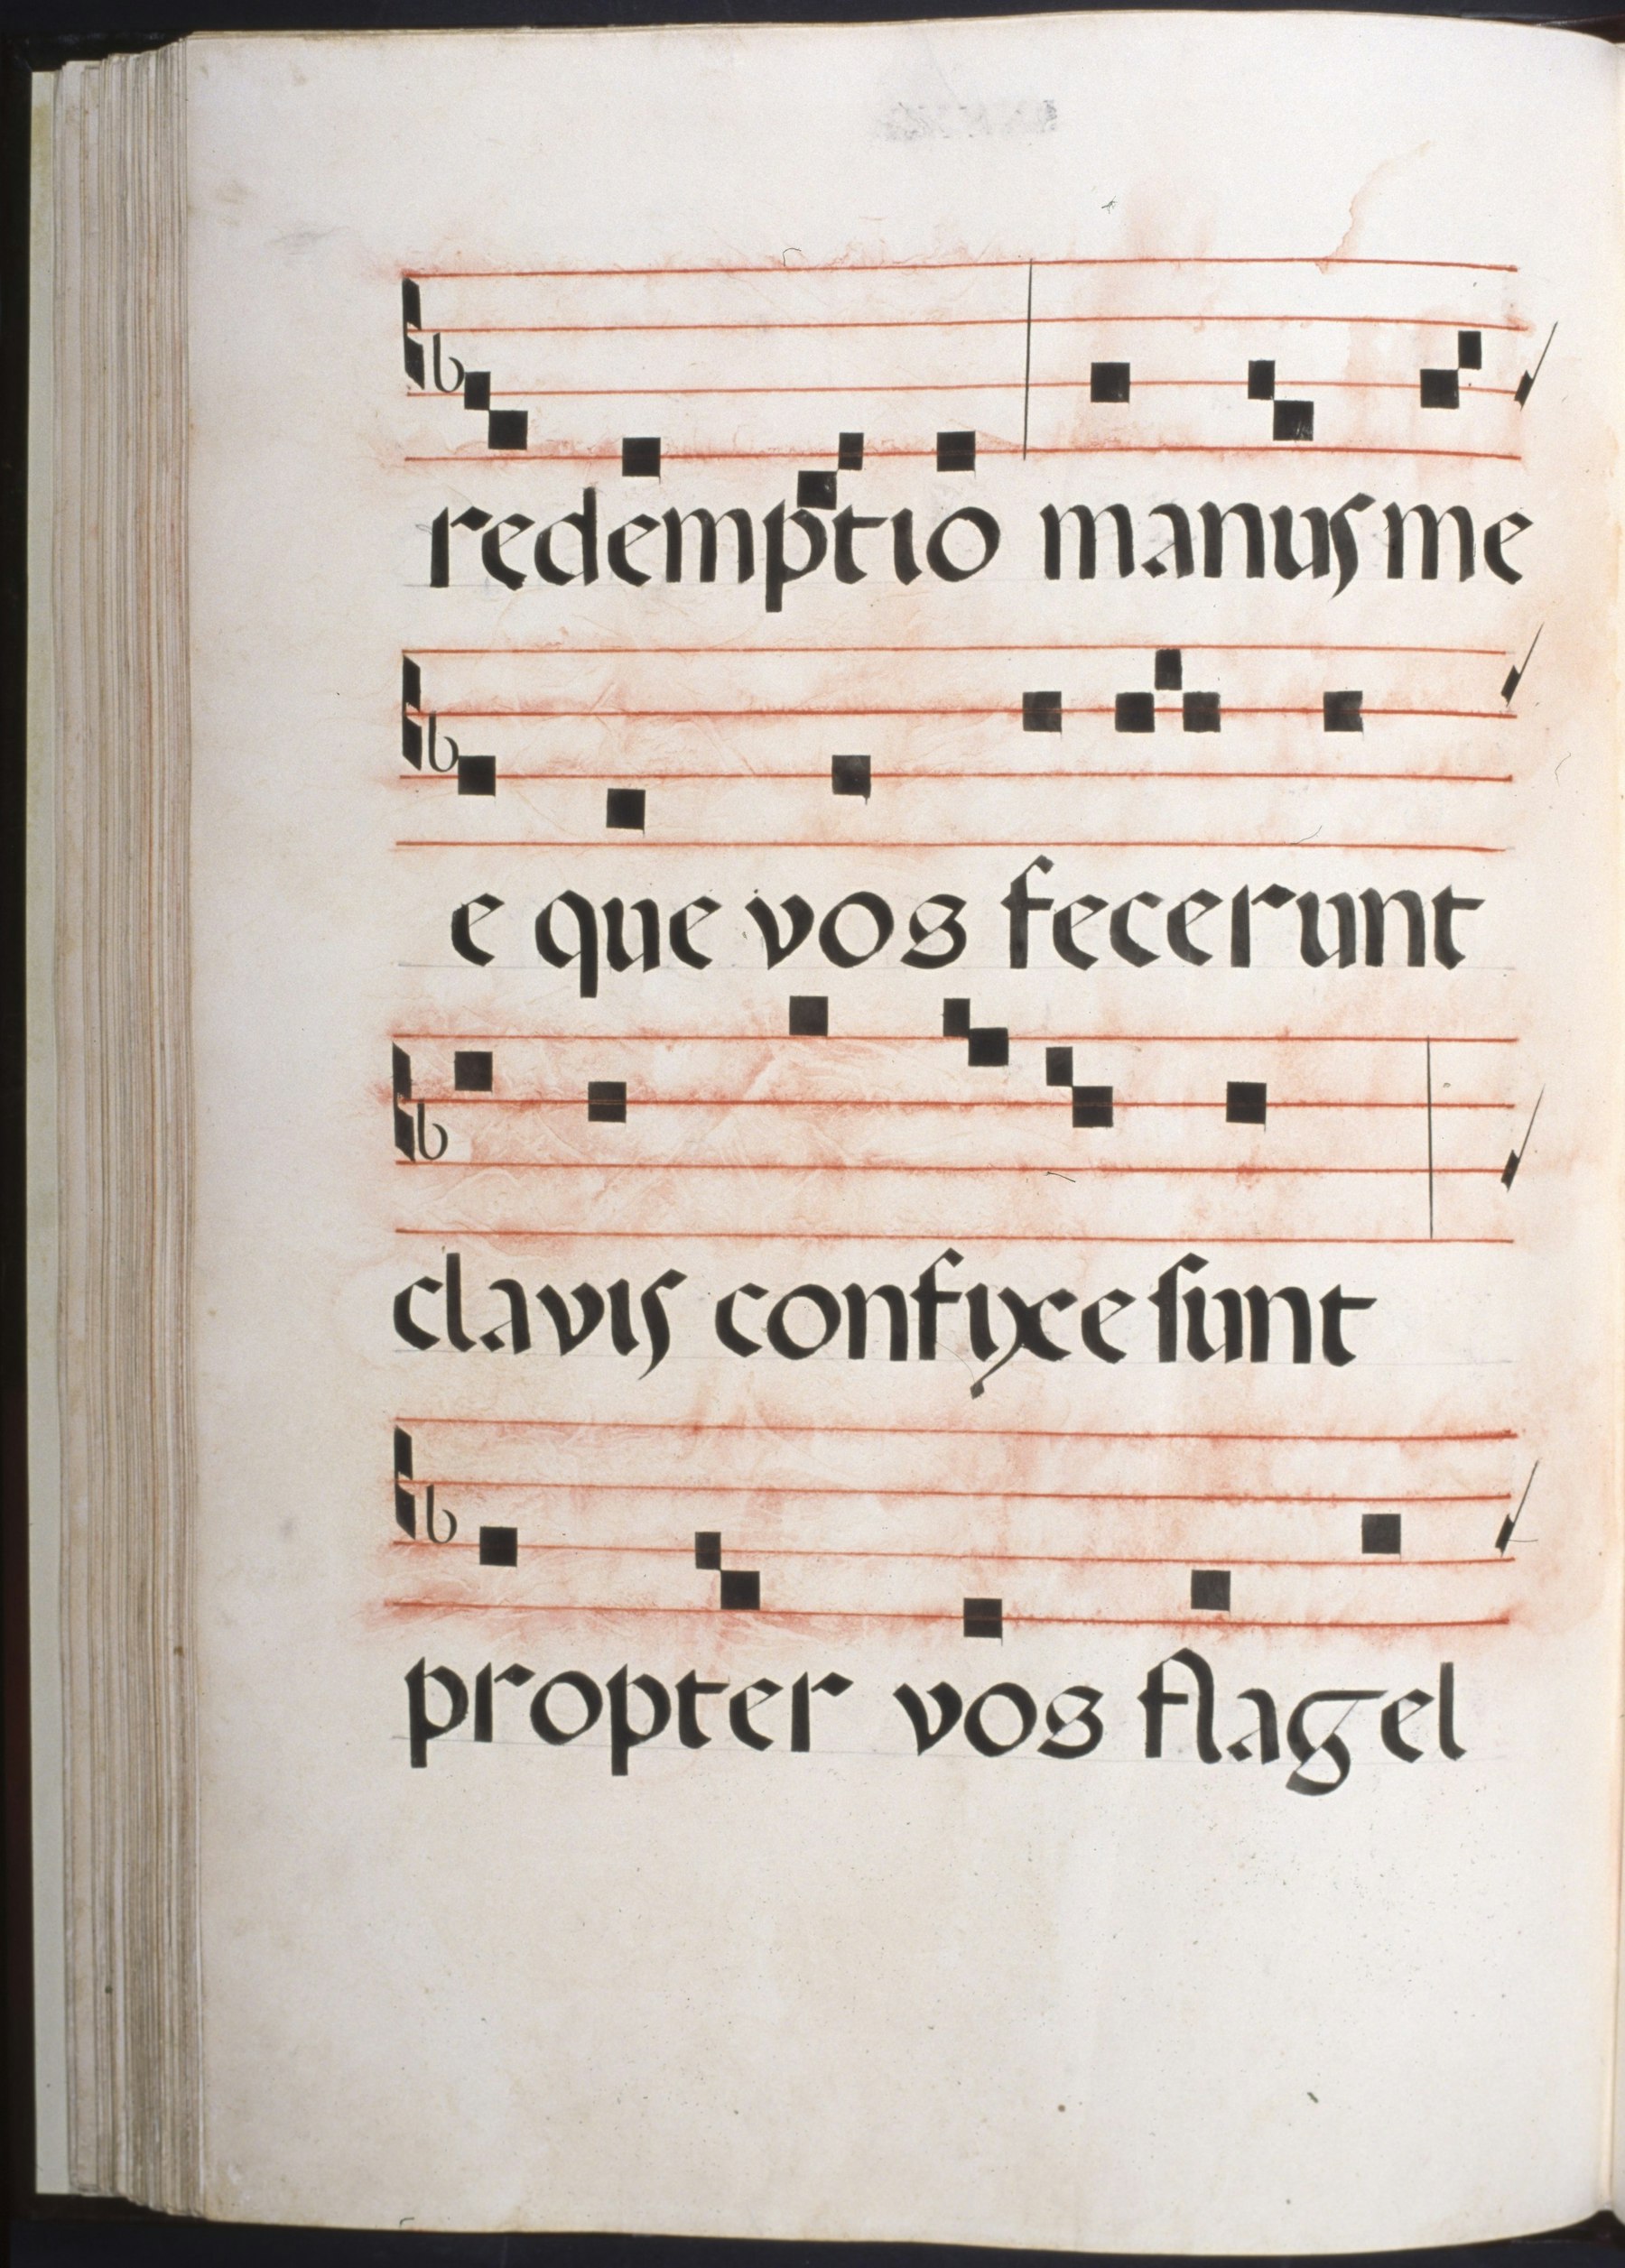 redemptio manus me
e que vos fecerunt
clavis confixe sunt
propter vos flagel